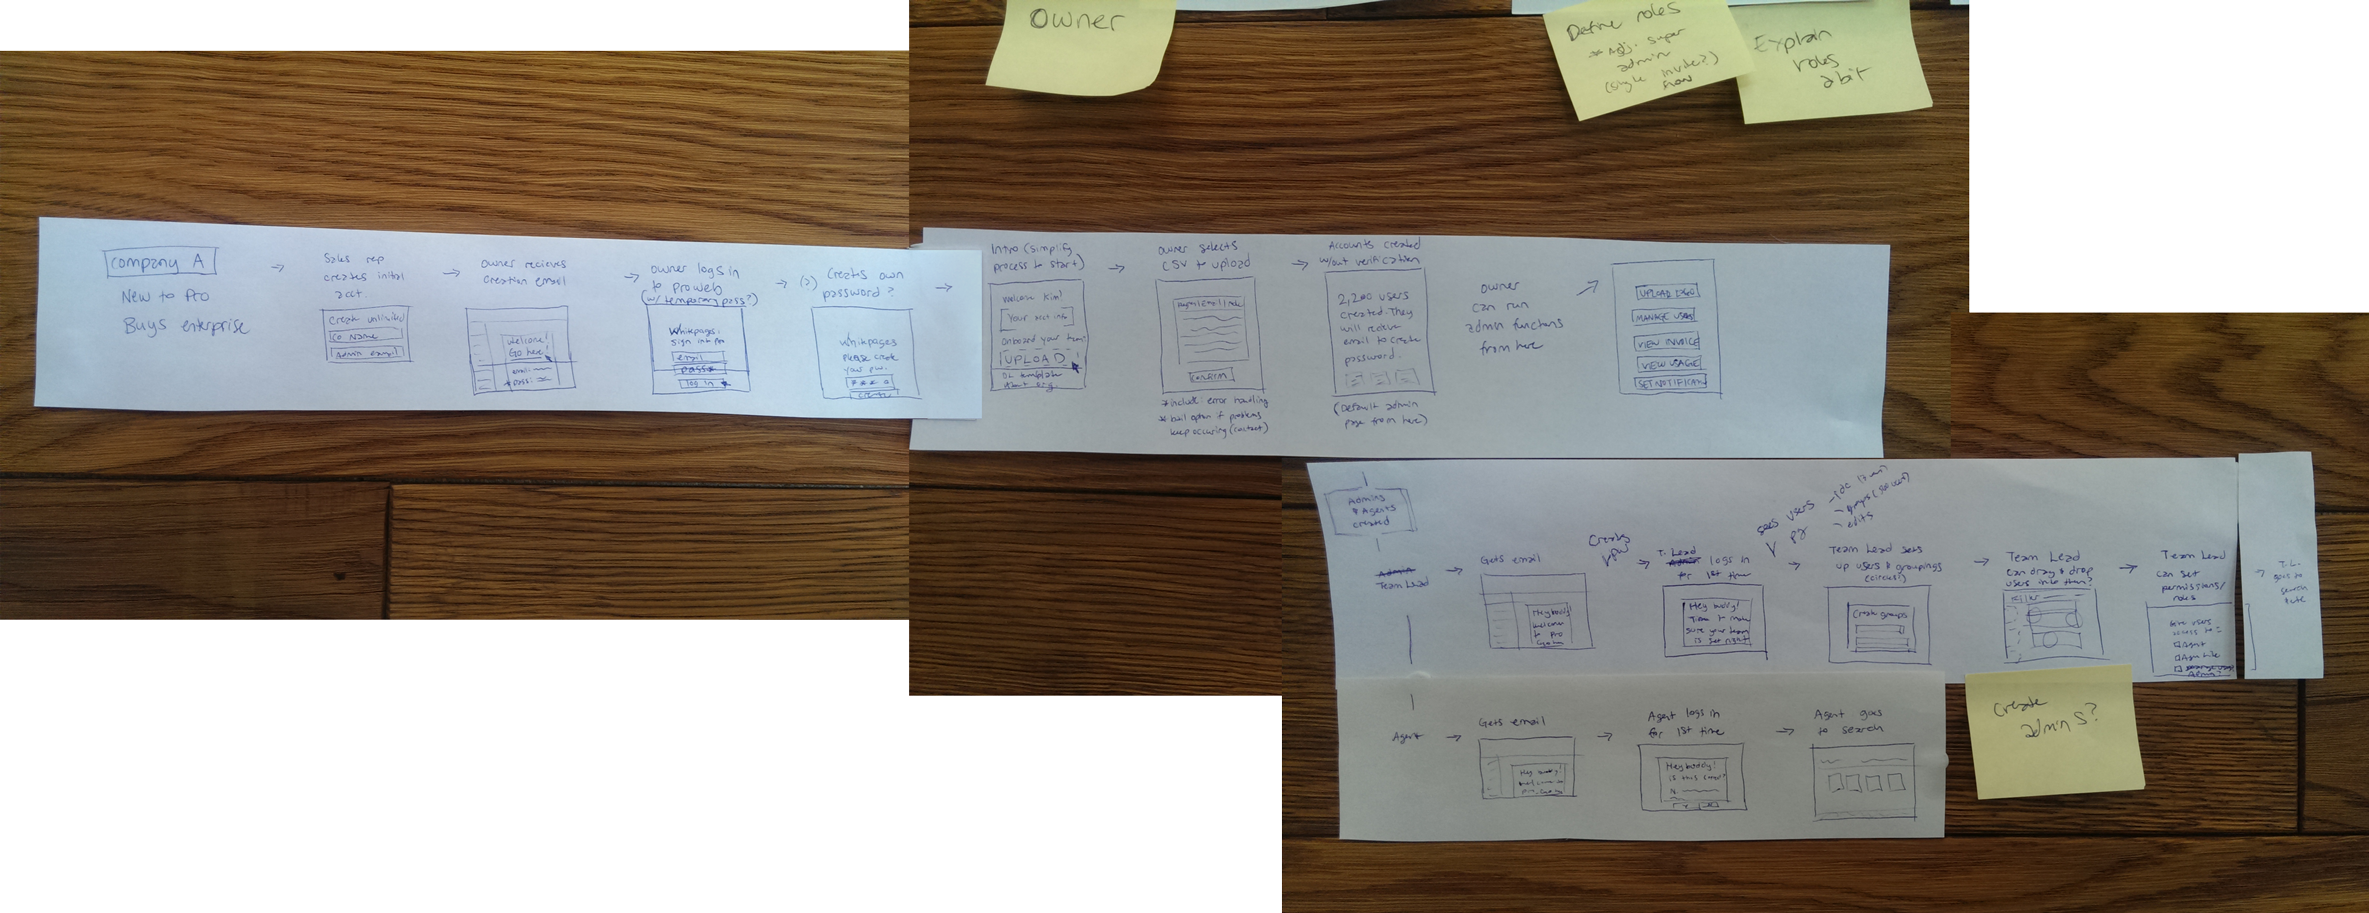 Owner
Define roles
super
admin
(single invite?)
Explain
roles
a bit
Company A
New to Pro
Buys enterprise
Sales rep
creates initial
acct.
Create unlimited
Co Name
Admin email
Owner recieves
creation email
Welcome!
Go here!
email:
pass:
Owner logs in
to Pro web
(w/ temporary pass?)
Whitepages.
Sign into Pro
email
pass
log in
(?) Creates own
password?
Whitepages
please create
your pw.
create
Intro (simplify
process to start)
Welcome Kim!
Your acct info
onboard your team
UPLOAD
DL template
Owner selects
CSV to upload
CONFIRM
* include: error handling
* bail option if problems
keep occuring (contact)
Accounts created
w/out verification
2,200 users
created. They
will recieve
email to create
password.
(Default admin
page from here)
Owner
can run
admin functions
from here
UPLOAD LOGO
MANAGE USERS
VIEW INVOICE
VIEW USAGE
SET NOTIFICATN
Admins
& Agents
created
Admin
Team Lead
Gets email
Hey buddy!
Welcome
to Pro
Creates
pw
T. Lead
Admin logs in
for 1st time
Hey buddy!
Time to make
sure your team
is set right
sees users
pg
- edits
Team Lead sets
up users & groupings
(circles!)
Create groups
Team Lead
can drag & drop
users into them?
Team Lead
can set
permissions/
roles
Give users
access to:
Agent
Admin?
T.L.
goes to
search
Agent
Gets email
Hey buddy!
Agent logs in
for 1st time
Hey buddy!
is this correct?
Agent goes
to search
Create
admins?